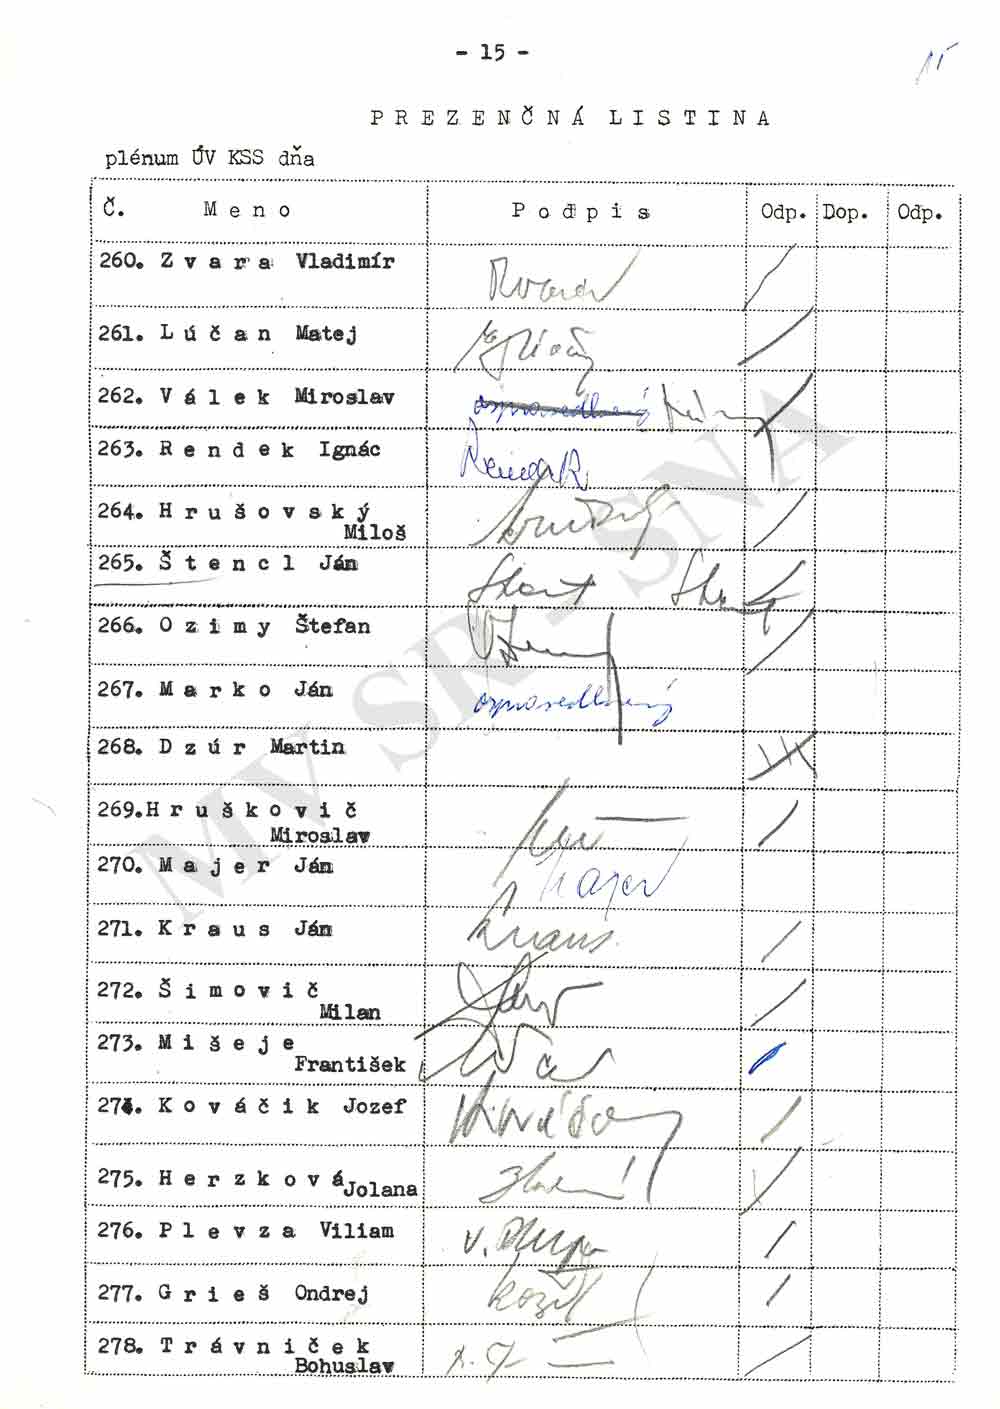 - 15 -
15
P R E Z E N Č N Á  L I S T I N A
plénum ÚV KSS dňa
Č. M e n o P o d p i s Odp. Dop. Odp.
260. Z v a r a Vladimír
261. L ú č a n Matej
262. V á l e k Miroslav ospravedlnený
263. R e n d e k Ignác Rendek
264. H r u š o v s k ý
Miloš
265. Š t e n c l Ján
266. O z i m y Štefan
267. M a r k o Ján ospravedlnený
268. D z ú r Martin
269. H r u š k o v i č
Miroslav
270. M a j e r Ján Majer
271. K r a u s Ján Kraus
272. Š i m o v i č
Milan
273. M i š e j e
František
274. K o v á č i k Jozef
275. H e r z k o v á
Jolana
276. P l e v z a Viliam V. Plevza
277. G r i e š Ondrej
278. T r á v n i č e k
Bohuslav
MV SR - SNA